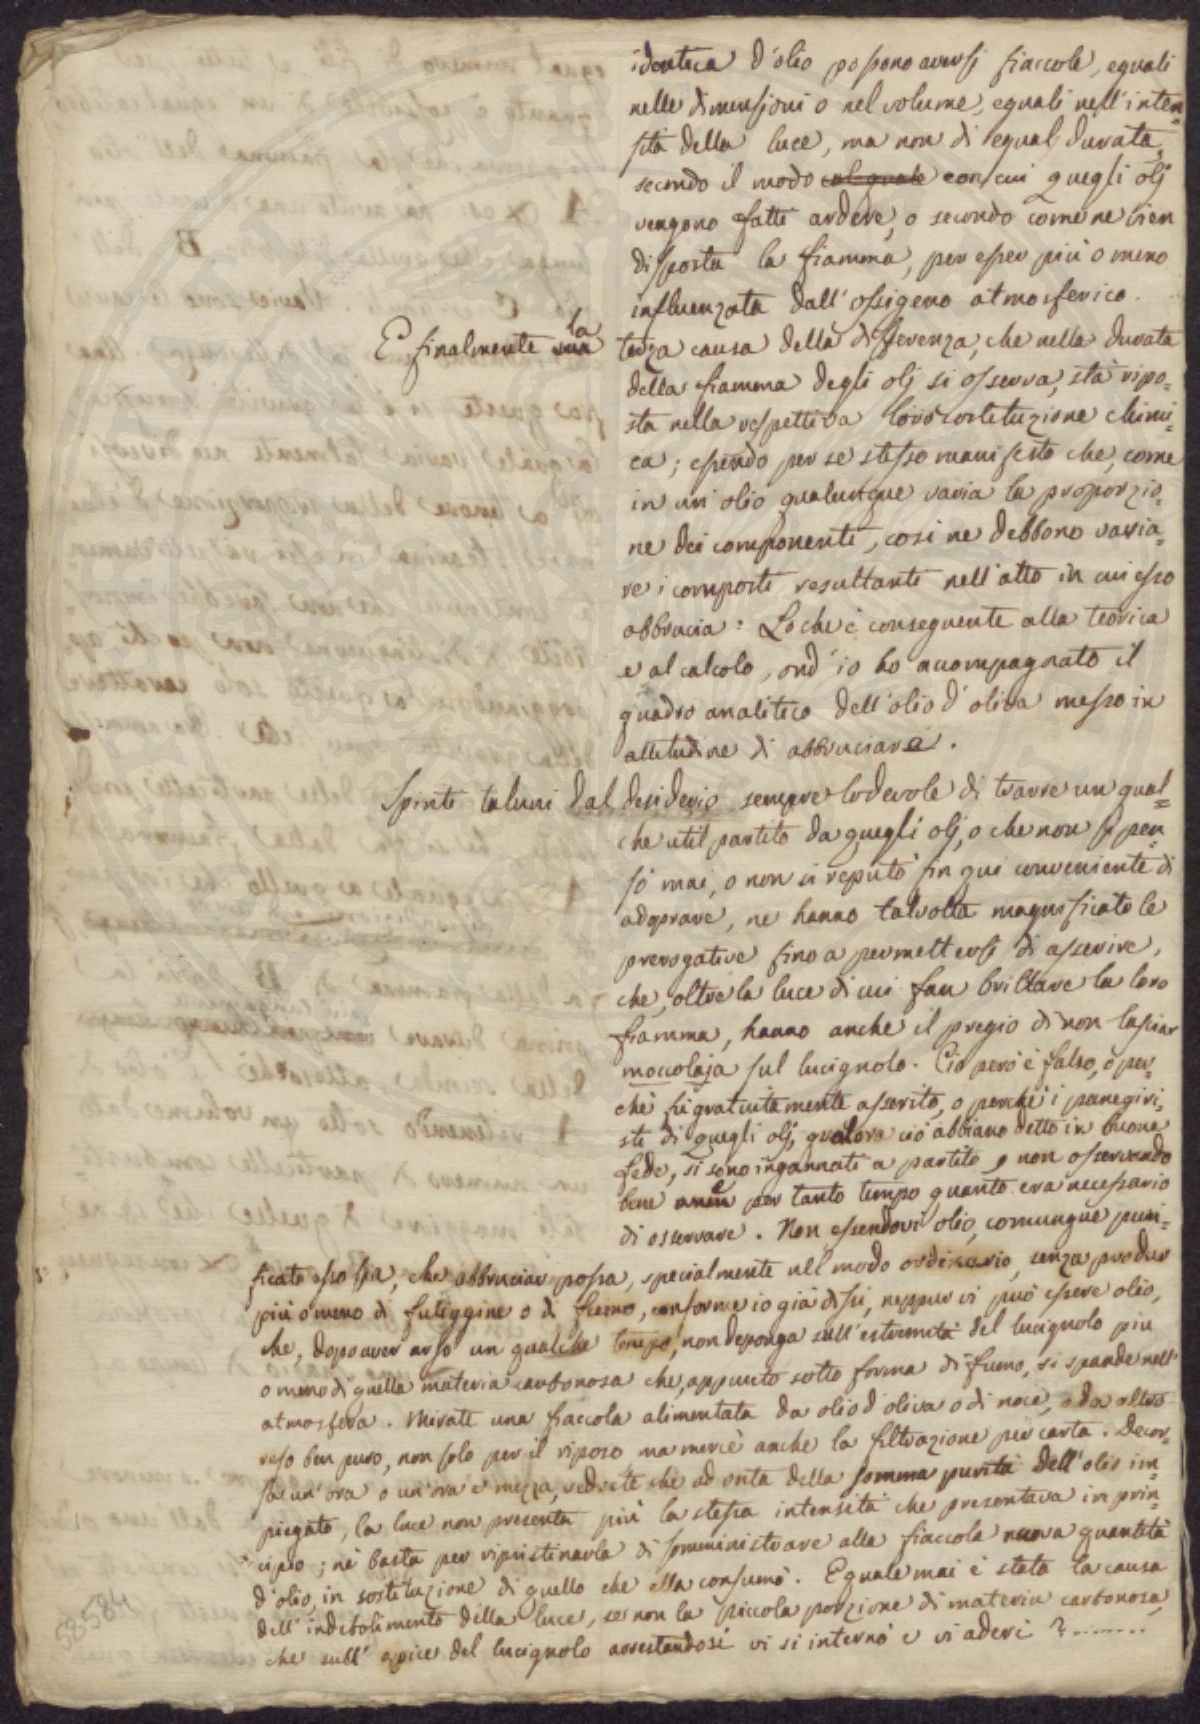 identica d'olio possono aversi fiaccole, eguali
nelle dimensioni o nel volume, eguali nell'inten=
sità della luce, ma non di egual durata,
secondo il modo col quale con cui quegli olj
vengono fatti ardere, o secondo come ne vien
disposta la fiamma, per esser più o meno
influenzata dall'ossigeno atmosferico.
E finalmente la terza causa della differenza, che nella durata
della fiamma degli olj si osserva, stà ripo=
sta nella respettiva loro costituzione chimi=
ca; essendo per se stesso manifesto che, come
in un'olio qualunque varia la proporzio=
ne dei componenti, così ne debbono varia=
re i composti resultanti nell'atto in cui esso
abbrucia: Lo che è conseguente alla teorica
e al calcolo, ond'io ho accompagnato il
quadro analitico dell'olio d'oliva messo in
attitudine di abbruciare.
Spinti taluni dal desiderio sempre lodevole di trarre un qual=
che util partito da quegli olj, o che non si pen=
sò mai, o non si reputò fin qui conveniente di
adoprare, ne hanno talvolta magnificato le
prerogative fino a permettersi di asserire,
che, oltre la luce di cui fan brillare la loro
fiamma, hanno anche il pregio di non lasciar
moccolaja sul lucignolo. Ciò però è falso, o per=
chè fù gratuitamente asserito, o perchè i panegiri=
sti di quegli olj, qualora ciò abbiano detto in buona
fede, si sono ingannati a partito, e non osservando
bene per tanto tempo quanto era necessario
di osservare. Non essendovi olio, comunque puri=
ficato esso sia, che abbruciar possa, specialmente nel modo ordinario, senza produr
più o meno di fuliggine o di fumo, conforme io già dissi, neppur vi può essere olio,
che, dopo aver arso un qualche tempo, non deponga sull'estremità del lucignolo più
o meno di quella materia carbonosa che, appunto sotto forma di fumo, si spande nell'
atmosfera. Mirate una fiaccola alimentata da olio d'oliva o di noce, o da altro
reso ben puro, non solo per il riposo ma mercè anche la filtrazione per carta. Decor=
sa un'ora o un'ora e mezza, vedrete che ad onta della somma purità dell'olio im=
piegato, la luce non presenta più la stessa intensità che presentava in prin=
cipio; nè basta per ripristinarla di somministrare alla fiaccola nuova quantità
d'olio, in sostituzione di quello che ella consumò. E quale mai è stata la causa
dell'indebolimento della luce, se non la piccola porzione di materia carbonosa,
che sull'apice del lucignolo arrestandosi vi si internò e vi aderì?........
58584